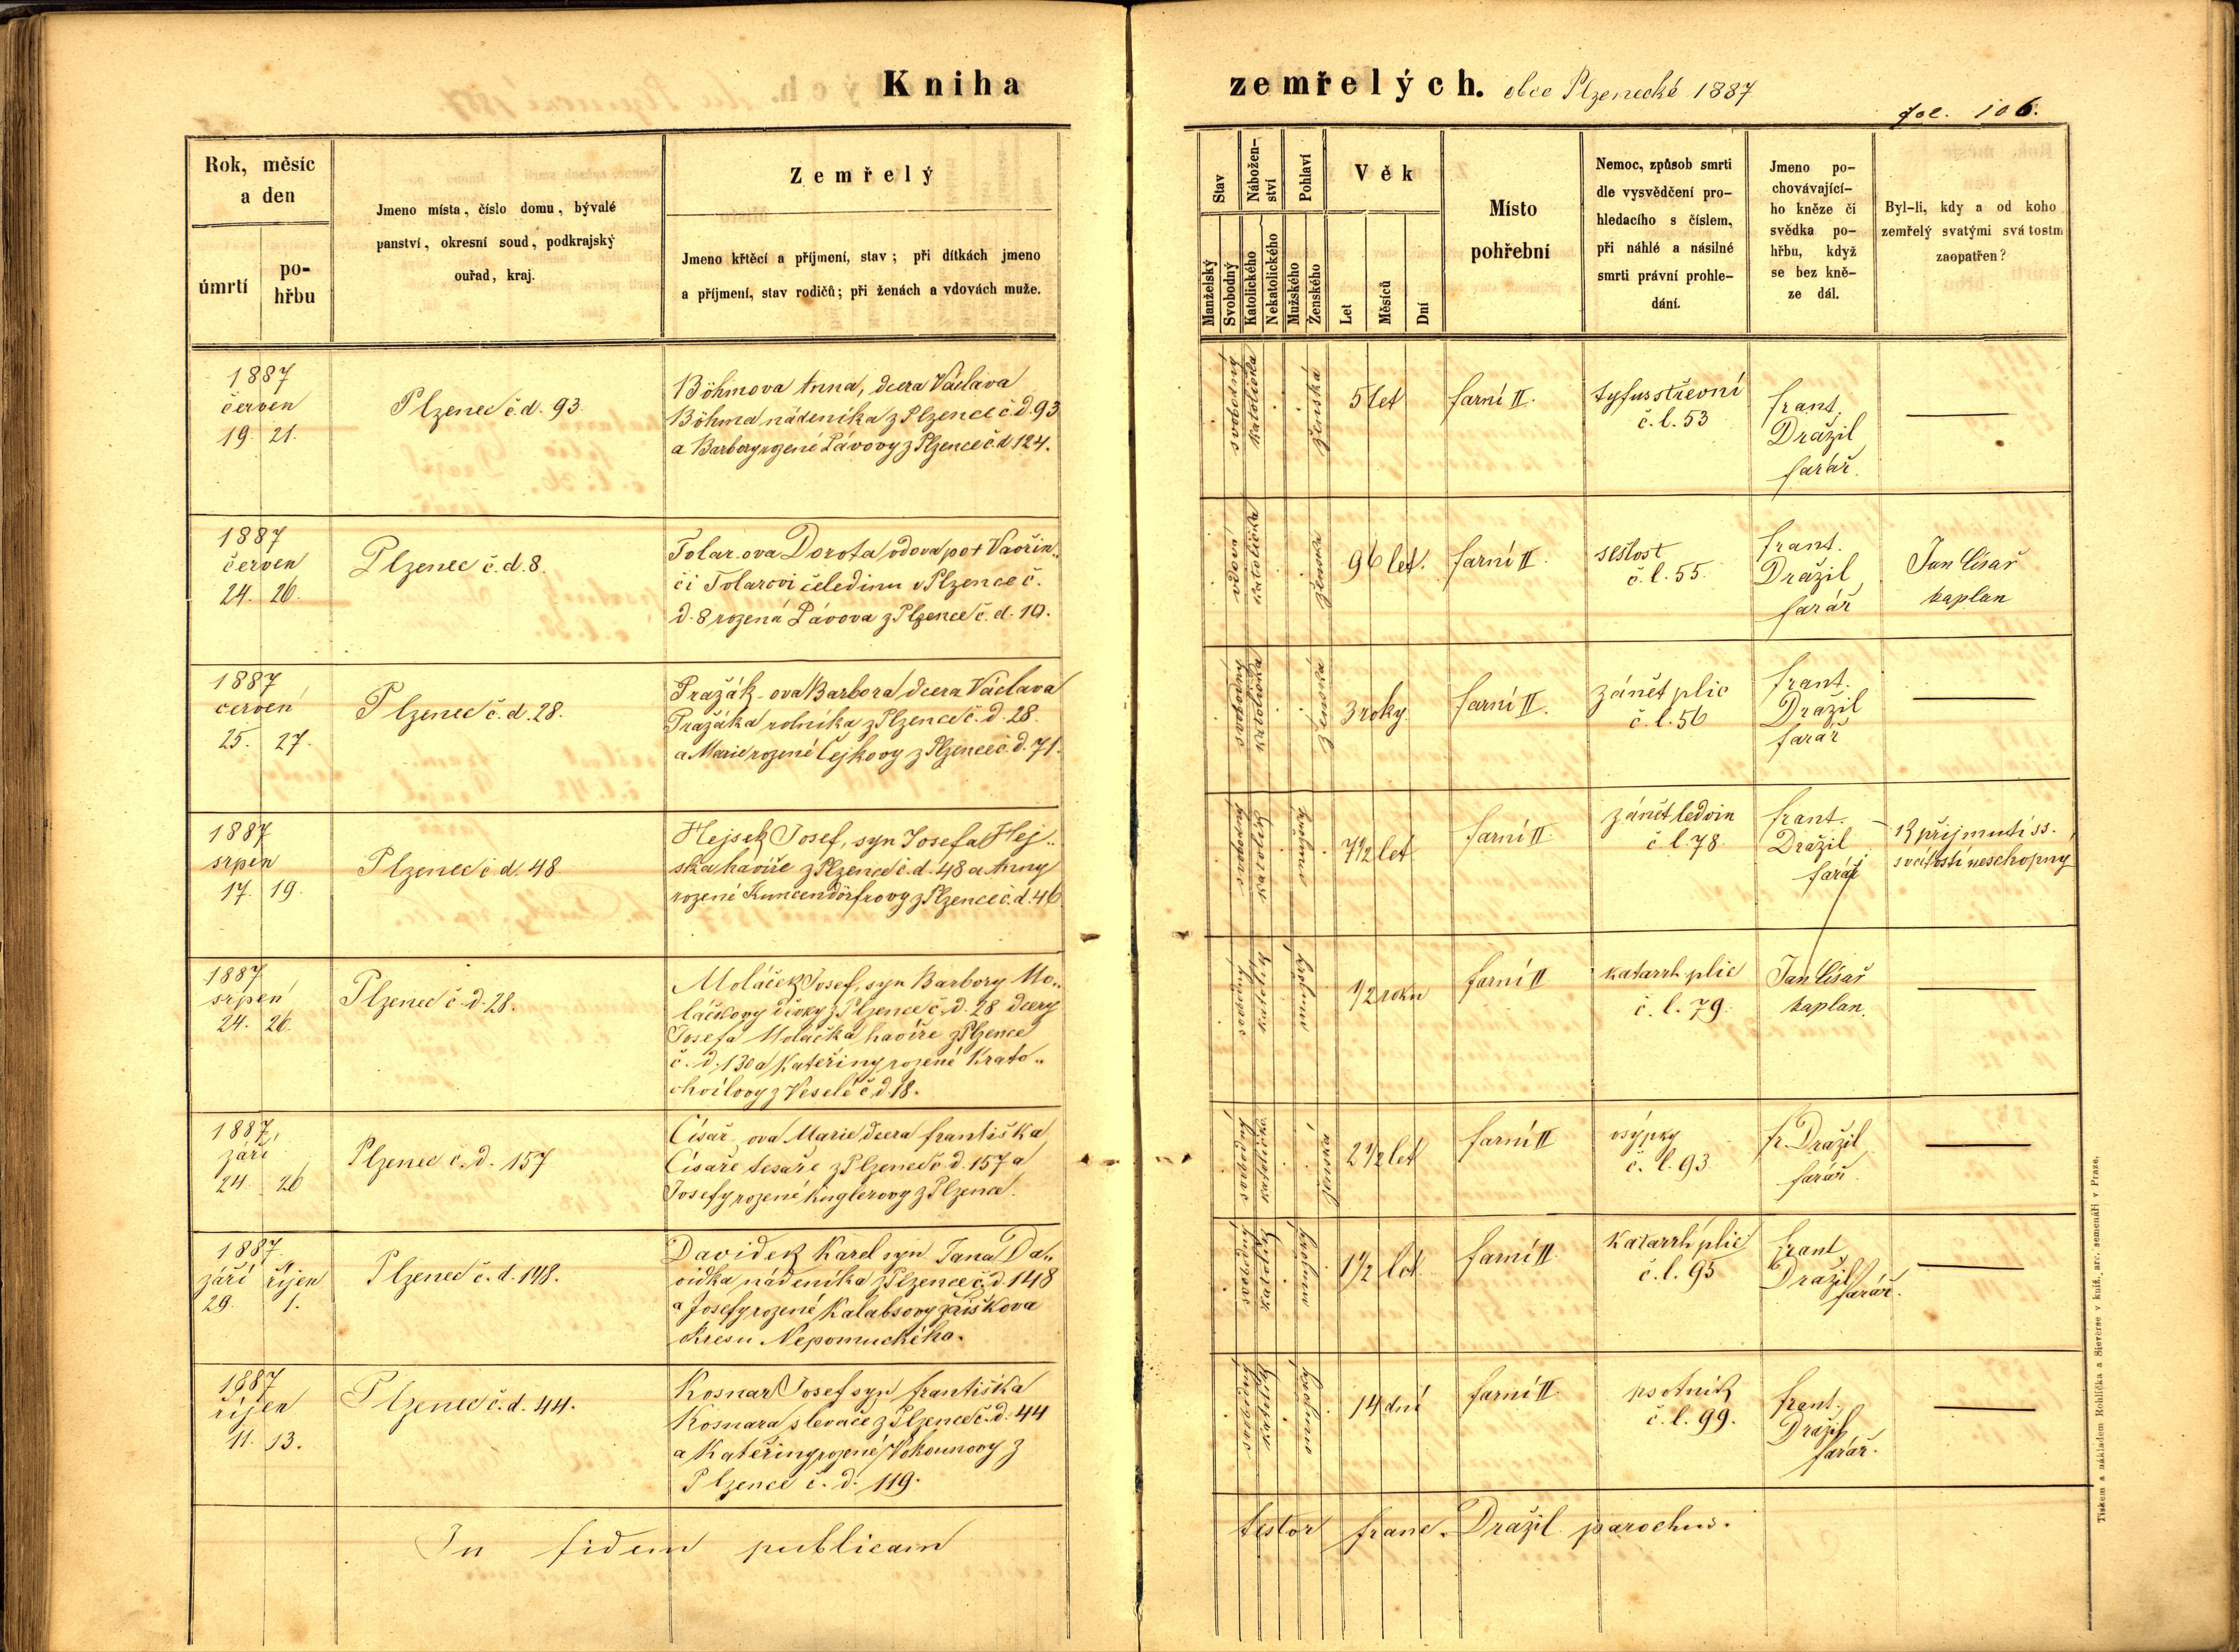 Kniha
zemřelých. obce Plzenecké 1887
fol. 106.
Rok, měsíc
a den
úmrtí
po-
hřbu
Jmeno místa, číslo domu, bývalé
panství, okresní soud, podkrajský
ouřad, kraj.
Zemřelý
Jmeno křtěcí a příjmení, stav; při dítkách jmeno
a příjmení, stav rodičů; při ženách a vdovách muže.
Stav
Manželský
Svobodný
Nábožen-
ství
Katolického
Nekatolického
Pohlaví
Mužského
Ženského
Věk
Let
Měsíců
Dní
Místo
pohřební
Nemoc, způsob smrti
dle vysvědčení pro-
hledacího s číslem,
při náhlé a násilné
smrti právní prohle-
dání.
Jmeno po-
chovávající-
ho kněze či
svědka po-
hřbu, když
se bez kně-
ze dál.
Byl-li, kdy a od koho
zemřelý svatými svátostm
zaopatřen?
1887
červen
19. 21.
Plzenec č.d. 93.
Böhmova Anna, dcera Václava
Böhma nádeníka z Plzence č.d. 93
a Barbory rozené Pávovy z Plzence č.d. 124.
svobodný
katolička
ženská
5 let
farní II.
tyfus střevní
č.l. 53
frant.
Dražil
farář.
1887
červen
24. 26.
Plzenec č.d. 8.
Tolar-ova Dorota, vdova po + Vavřin..
či Tolarovi čeledínu v Plzence č.
d. 8 rozená Pávova z Plzence č. d. 10.
vdova
katolička
ženská
96 let.
farní II.
sešlost
č.l. 55.
frant.
Dražil
farář
Jan Císař
kaplan
1887
červen
25. 27.
Plzenec č.d. 28.
Pražák-ova Barbora, dcera Václava
Pražáka rolníka z Plzence č. d. 28.
a Marie rozené Čejkovy z Plzence č.d. 71.
svobodný
katolička
ženská
3 roky
farní II.
zánět plic
č.l. 56
frant.
Dražil
farář
1887
srpen
17. 19.
Plzenec č.d. 48.
Hejsek Josef, syn Josefa Hej..
ska havíře z Plzence č.d. 48 a Anny
rozené Kuncendörfrovy z Plzence č.d. 46
svobodný
katolický
mužské
7 1/2 let
farní II.
zánět ledvin
č.l. 78.
frant.
Dražil
farář
přijmutí ss.
svátostí neschopný
1887
srpen
24. 26.
Plzenec č.d. 28.
Moláček Josef, syn Barbory Mo..
láčkovy děvky z Plzence č.d. 28 dcery
Josefa Moláčka havíře z Plzence
č. d. 130 a Kateřiny rozené Krato..
chvílovy z Veselé č.d. 18.
svobodný
katolický
mužské
1/2 roku
farní II
katarrh plic
č. l. 79.
Jan Císař
kaplan.
1887
září
24. 26
Plzenec č.d. 157
Císař-ova Marie dcera františka
Císaře tesaře z Plzence č.d. 157 a
Josefy rozené Kuglerovy z Plzence.
svobodný
katolička
ženská
2 1/2 let
farní II
osypky
č. l. 93.
fr. Dražil
farář.
1887.
září říjen
29. 1.
Plzenec č.d. 148.
Davidek Karel syn Jana Da..
vidka nádeníka z Plzence č.d. 148
a Josefy rozené Kalabsovy z
okresu Nepomuckého.
svobodný
katolický
mužské
1 1/2 let
farní II.
katarrh plic
č.l. 95
frant
Dražil
farář.
1887
říjen
11. 13.
Plzenec č.d. 44.
Kosnar Josef syn františka
Kosnara slevače z Plzence č.d. 44
a Kateřiny rozené Vokounovy z
Plzence č. d. 119.
svobodný
katolický
mužské
14 dní
farní II.
psotník
č.l. 99.
frant.
Dražil
farář.
In fidem publicam
testor franc. Dražil parochus.
Tiskem a nákladem Rohlíčka a Sieverse v kníž. arc. semenáři v Praze.